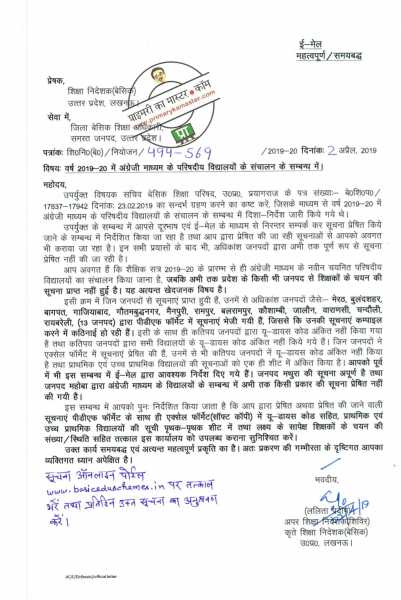 ई–मेल
महत्वपूर्ण/समयबद्ध
प्रेषक,
शिक्षा निदेशक(बेसिक)
उत्तर प्रदेश, लखनऊ।
सेवा में,
जिला बेसिक शिक्षा अधिकारी,
समस्त जनपद, उत्तर प्रदेश।
प्राइमरी का मास्टर●कॉम
www.primarykamaster.com
पत्रांकः शि०नि०(बे०)/नियोजन/ 494-569 /2019–20 दिनांकः 2 अप्रैल, 2019
विषयः वर्ष 2019–20 में अंग्रेजी माध्यम के परिषदीय विद्यालयों के संचालन के सम्बन्ध में।
महोदय,
उपर्युक्त विषयक सचिव बेसिक शिक्षा परिषद, उ०प्र०, प्रयागराज के पत्र संख्याः– बे०शि०प०/
17837–17942 दिनांकः 23.02.2019 का सन्दर्भ ग्रहण करने का कष्ट करें, जिसके माध्यम से वर्ष 2019–20 में
अंग्रेजी माध्यम के परिषदीय विद्यालयों के संचालन के सम्बन्ध में दिशा–निर्देश जारी किये गये थे।
उपर्युक्त के सम्बन्ध में आपसे दूरभाष एवं ई–मेल के माध्यम से निरन्तर सम्पर्क कर सूचना प्रेषित किये
जाने के सम्बन्ध में निर्देशित किया जा रहा है तथा आप द्वारा प्रेषित की जा रही सूचनाओं से आपको अवगत
भी कराया जा रहा है। इन सभी प्रयासों के बाद भी, अधिकांश जनपदों द्वारा अभी तक पूर्ण रूप से सूचना
प्रेषित नहीं की जा रही है।
आप अवगत हैं कि शैक्षिक सत्र 2019–20 के प्रारम्भ से ही अंग्रेजी माध्यम के नवीन चयनित परिषदीय
विद्यालयों का संचालन किया जाना है, जबकि अभी तक प्रदेश के किसी भी जनपद से शिक्षकों के चयन की
सूचना प्राप्त नहीं हुई है। यह अत्यन्त खेदजनक विषय है।
इसी क्रम में जिन जनपदों से सूचनाएं प्राप्त हुयी हैं, उनमें से अधिकांश जनपदों जैसे– मेरठ, बुलंदशहर,
बागपत, गाजियाबाद, गौतमबुद्धनगर, मैनपुरी, रामपुर, बलरामपुर, कौशाम्बी, जालौन, वाराणसी, चन्दौली,
रायबरेली, (13 जनपद) द्वारा पीडीएफ फॉर्मेट में सूचनाएं भेजी गयी हैं, जिससे कि उनकी सूचनाएं कम्पाइल
करने में कठिनाई हो रही हैं। इसी के साथ ही कतिपय जनपदों द्वारा यू–डायस कोड अंकित नहीं किया गया
है तथा कतिपय जनपदों द्वारा सभी विद्यालयों के यू–डायस कोड अंकित नहीं किये गये हैं। जिन जनपदों ने
एक्सेल फॉर्मेट में सूचनाएं प्रेषित की हैं, उनमें से भी कतिपय जनपदों में यू–डायस कोड अंकित नहीं किया
है तथा प्राथमिक एवं उच्च प्राथमिक विद्यालयों की सूचनाओं को एक ही शीट में अंकित किया है। आपको पूर्व
में भी इस सम्बन्ध में ई–मेल द्वारा आवश्यक निर्देश दिए गये थे। जनपद मथुरा की सूचना अपूर्ण है तथा
जनपद महोबा द्वारा अंग्रेजी माध्यम के विद्यालयों के सम्बन्ध में अभी तक किसी प्रकार की सूचना प्रेषित नहीं
की गयी है।
इस सम्बन्ध में आपको पुनः निर्देशित किया जाता है कि आप द्वारा प्रेषित अथवा प्रेषित की जाने वाली
सूचनाएं पीडीएफ फॉर्मेट के साथ ही एक्सेल फॉर्मेट(सॉफ्ट कॉपी) में यू–डायस कोड सहित, प्राथमिक एवं
उच्च प्राथमिक विद्यालयों की सूची पृथक–पृथक शीट में तथा लक्ष्य के सापेक्ष शिक्षकों के चयन की
संख्या/स्थिति सहित तत्काल इस कार्यालय को उपलब्ध कराना सुनिश्चित करें।
उक्त कार्य समयबद्ध एवं अत्यन्त महत्वपूर्ण प्रकृति का है। अतः प्रकरण की गम्भीरता के दृष्टिगत आपका
व्यक्तिगत ध्यान अपेक्षित है।
सूचना ऑनलाइन पोर्टल
www.basiceduschemes.in पर तत्काल
भरें तथा प्रतिदिन उक्त सूचना का अनुश्रवण
करें।
भवदीय,
(ललिता प्रदीप)
अपर शिक्षा निदेशक(शिविर)
कृते शिक्षा निदेशक(बेसिक)
उ०प्र० लखनऊ।